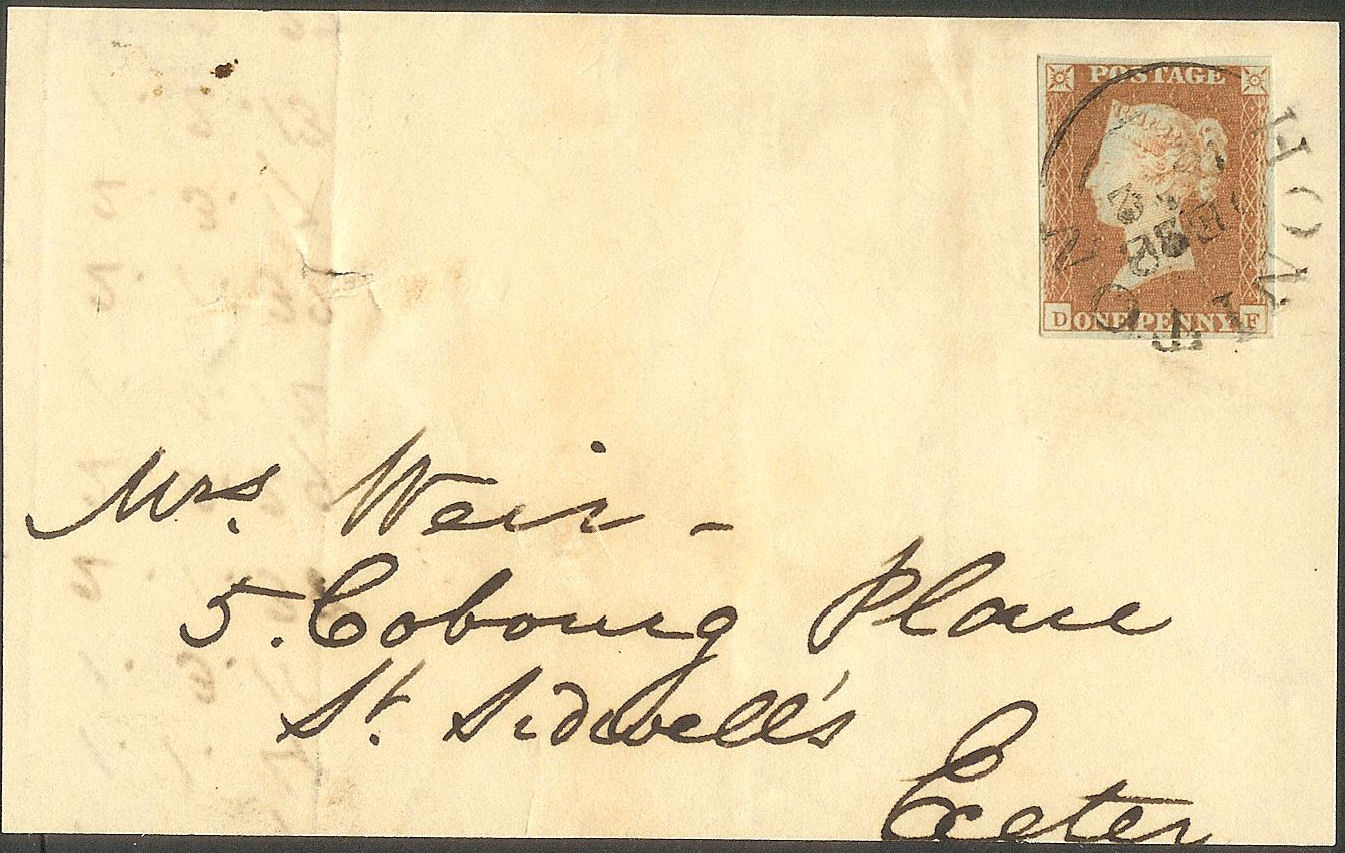 POSTAGE
D ONE PENNY F
HONITON
Mrs. Weir -
5. Cobourg Place
St. Sidwell's
Exeter